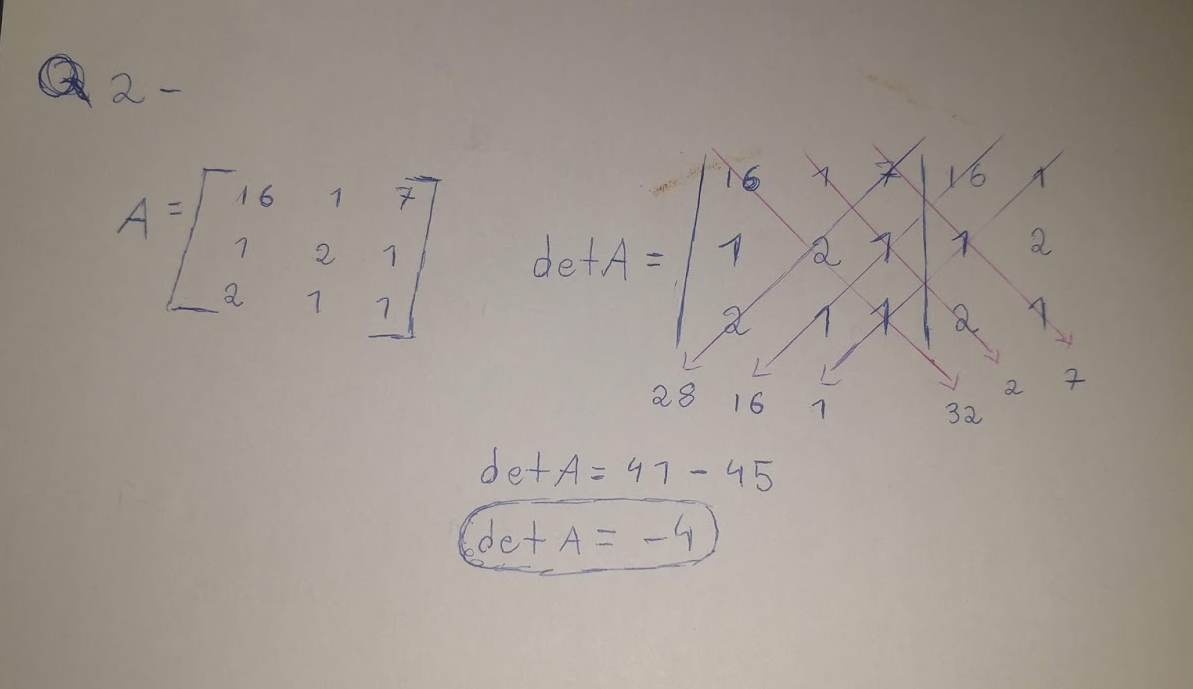 Q 2 -
A = [ 16 1 7
1 2 1
2 1 1 ]
det A = | 16 1 7 | 16 1
1 2 1 | 1 2
2 1 1 | 2 1
28 16 1 32 2 7
det A = 41 - 45
det A = -4